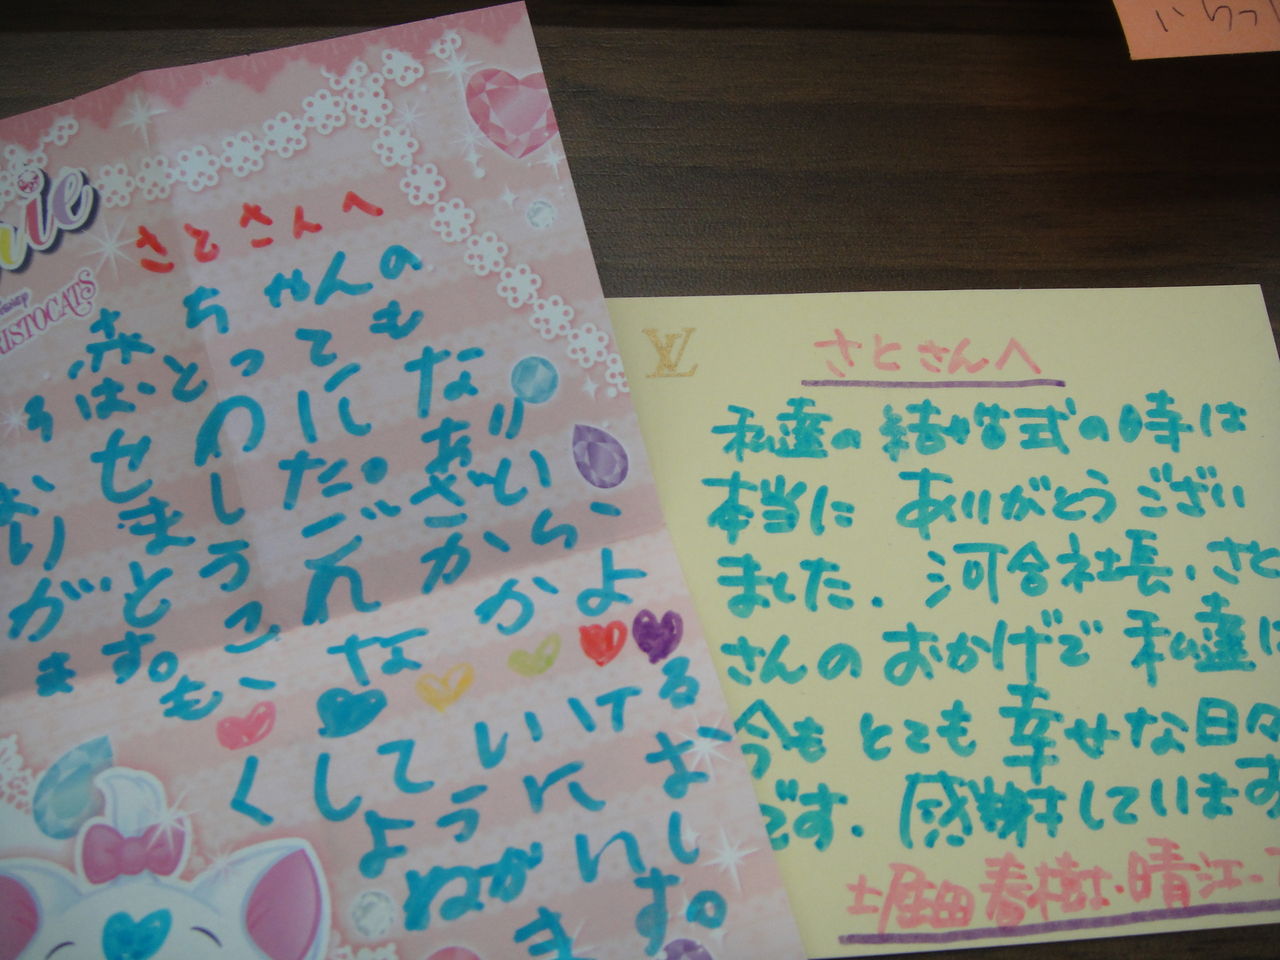 ie
DISNEY
ARISTOCATS
さとさんへ
ちゃんの
はとっても
おセわにな
りました。あり
がとうござい
ます。これから
も、なかよ
くしていける
ように お
ねがいし
ます。
LV
さとさんへ
私達の結婚式の時は
本当に ありがとうござい
ました. 河合社長、さと
さんのおかげで 私達は
今も とても 幸せな日々
です. 感謝しています
堀田 春樹・晴江
いらっし